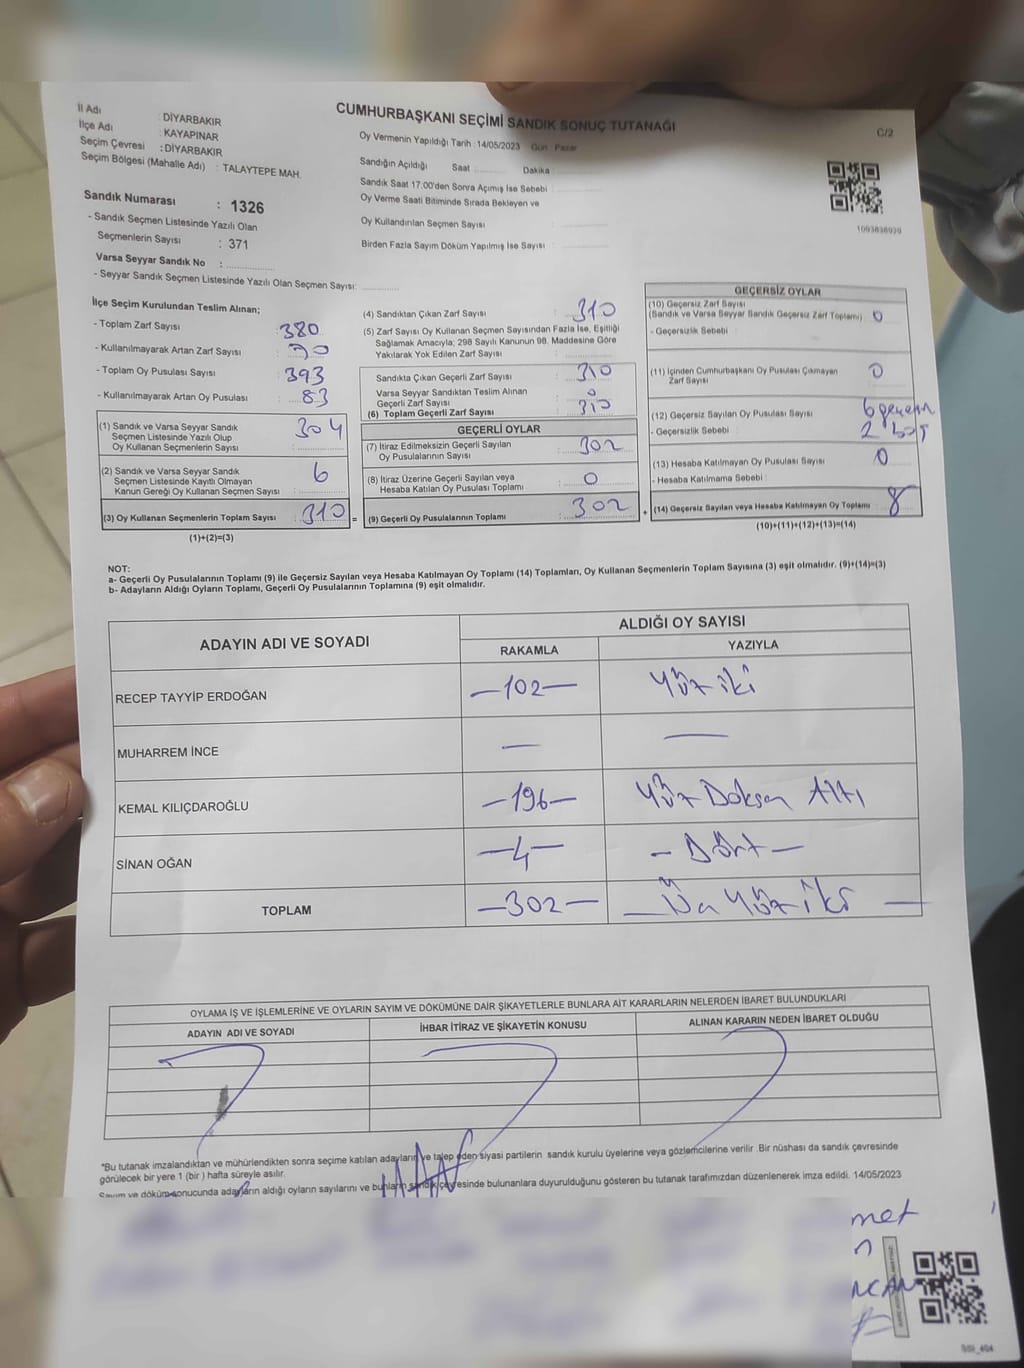 CUMHURBAŞKANI SEÇİMİ SANDIK SONUÇ TUTANAĞI
C/2
İl Adı : DİYARBAKIR
İlçe Adı : KAYAPINAR
Seçim Çevresi : DİYARBAKIR
Seçim Bölgesi (Mahalle Adı) : TALAYTEPE MAH.
Sandık Numarası : 1326
- Sandık Seçmen Listesinde Yazılı Olan
Seçmenlerin Sayısı : 371
Varsa Seyyar Sandık No :
- Seyyar Sandık Seçmen Listesinde Yazılı Olan Seçmen Sayısı:
Oy Vermenin Yapıldığı Tarih : 14/05/2023 Gün : Pazar
Sandığın Açıldığı Saat Dakika
Sandık Saat 17.00'den Sonra Açımış İse Sebebi :
Oy Verme Saati Bitiminde Sırada Bekleyen ve
Oy Kullandırılan Seçmen Sayısı :
Birden Fazla Sayım Döküm Yapılmış İse Sayısı :
1093838939
İlçe Seçim Kurulundan Teslim Alınan;
- Toplam Zarf Sayısı : 380
- Kullanılmayarak Artan Zarf Sayısı : 70
- Toplam Oy Pusulası Sayısı : 393
- Kullanılmayarak Artan Oy Pusulası : 83
(1) Sandık ve Varsa Seyyar Sandık
Seçmen Listesinde Yazılı Olup
Oy Kullanan Seçmenlerin Sayısı : 304
(2) Sandık ve Varsa Seyyar Sandık
Seçmen Listesinde Kayıtlı Olmayan
Kanun Gereği Oy Kullanan Seçmen Sayısı : 6
(3) Oy Kullanan Seçmenlerin Toplam Sayısı : 310 =
(1)+(2)=(3)
(4) Sandıktan Çıkan Zarf Sayısı : 310
(5) Zarf Sayısı Oy Kullanan Seçmen Sayısından Fazla İse, Eşitliği
Sağlamak Amacıyla; 298 Sayılı Kanunun 98. Maddesine Göre
Yakılarak Yok Edilen Zarf Sayısı :
Sandıkta Çıkan Geçerli Zarf Sayısı : 310
Varsa Seyyar Sandıktan Teslim Alınan
Geçerli Zarf Sayısı : 0
(6) Toplam Geçerli Zarf Sayısı : 310
GEÇERLİ OYLAR
(7) İtiraz Edilmeksizin Geçerli Sayılan
Oy Pusulalarının Sayısı : 302
(8) İtiraz Üzerine Geçerli Sayılan veya
Hesaba Katılan Oy Pusulası Toplamı : 0
(9) Geçerli Oy Pusulalarının Toplamı : 302 +
GEÇERSİZ OYLAR
(10) Geçersiz Zarf Sayısı
(Sandık ve Varsa Seyyar Sandık Geçersiz Zarf Toplamı) : 0
- Geçersizlik Sebebi :
(11) İçinden Cumhurbaşkanı Oy Pusulası Çıkmayan
Zarf Sayısı : 0
(12) Geçersiz Sayılan Oy Pusulası Sayısı : 6
- Geçersizlik Sebebi : 2 boş
(13) Hesaba Katılmayan Oy Pusulası Sayısı : 0
- Hesaba Katılmama Sebebi :
(14) Geçersiz Sayılan veya Hesaba Katılmayan Oy Toplamı : 8
(10)+(11)+(12)+(13)=(14)
NOT:
a- Geçerli Oy Pusulalarının Toplamı (9) ile Geçersiz Sayılan veya Hesaba Katılmayan Oy Toplamı (14) Toplamları, Oy Kullanan Seçmenlerin Toplam Sayısına (3) eşit olmalıdır. (9)+(14)=(3)
b- Adayların Aldığı Oyların Toplamı, Geçerli Oy Pusulalarının Toplamına (9) eşit olmalıdır.
ADAYIN ADI VE SOYADI
ALDIĞI OY SAYISI
RAKAMLA YAZIYLA
RECEP TAYYİP ERDOĞAN —102— Yüz iki
MUHARREM İNCE — —
KEMAL KILIÇDAROĞLU —196— Yüz Doksan Altı
SİNAN OĞAN —4— — Dört —
TOPLAM —302— — Üç Yüz iki —
OYLAMA İŞ VE İŞLEMLERİNE VE OYLARIN SAYIM VE DÖKÜMÜNE DAİR ŞİKAYETLERLE BUNLARA AİT KARARLARIN NELERDEN İBARET BULUNDUKLARI
ADAYIN ADI VE SOYADI İHBAR İTİRAZ VE ŞİKAYETİN KONUSU ALINAN KARARIN NEDEN İBARET OLDUĞU
*Bu tutanak imzalandıktan ve mühürlendikten sonra seçime katılan adayların ve talep eden siyasi partilerin sandık kurulu üyelerine veya gözlemcilerine verilir. Bir nüshası da sandık çevresinde
görülecek bir yere 1 (bir) hafta süreyle asılır.
Sayım ve döküm sonucunda adayların aldığı oyların sayılarını ve bunların sandık çevresinde bulunanlara duyurulduğunu gösteren bu tutanak tarafımızdan düzenlenerek imza edildi. 14/05/2023